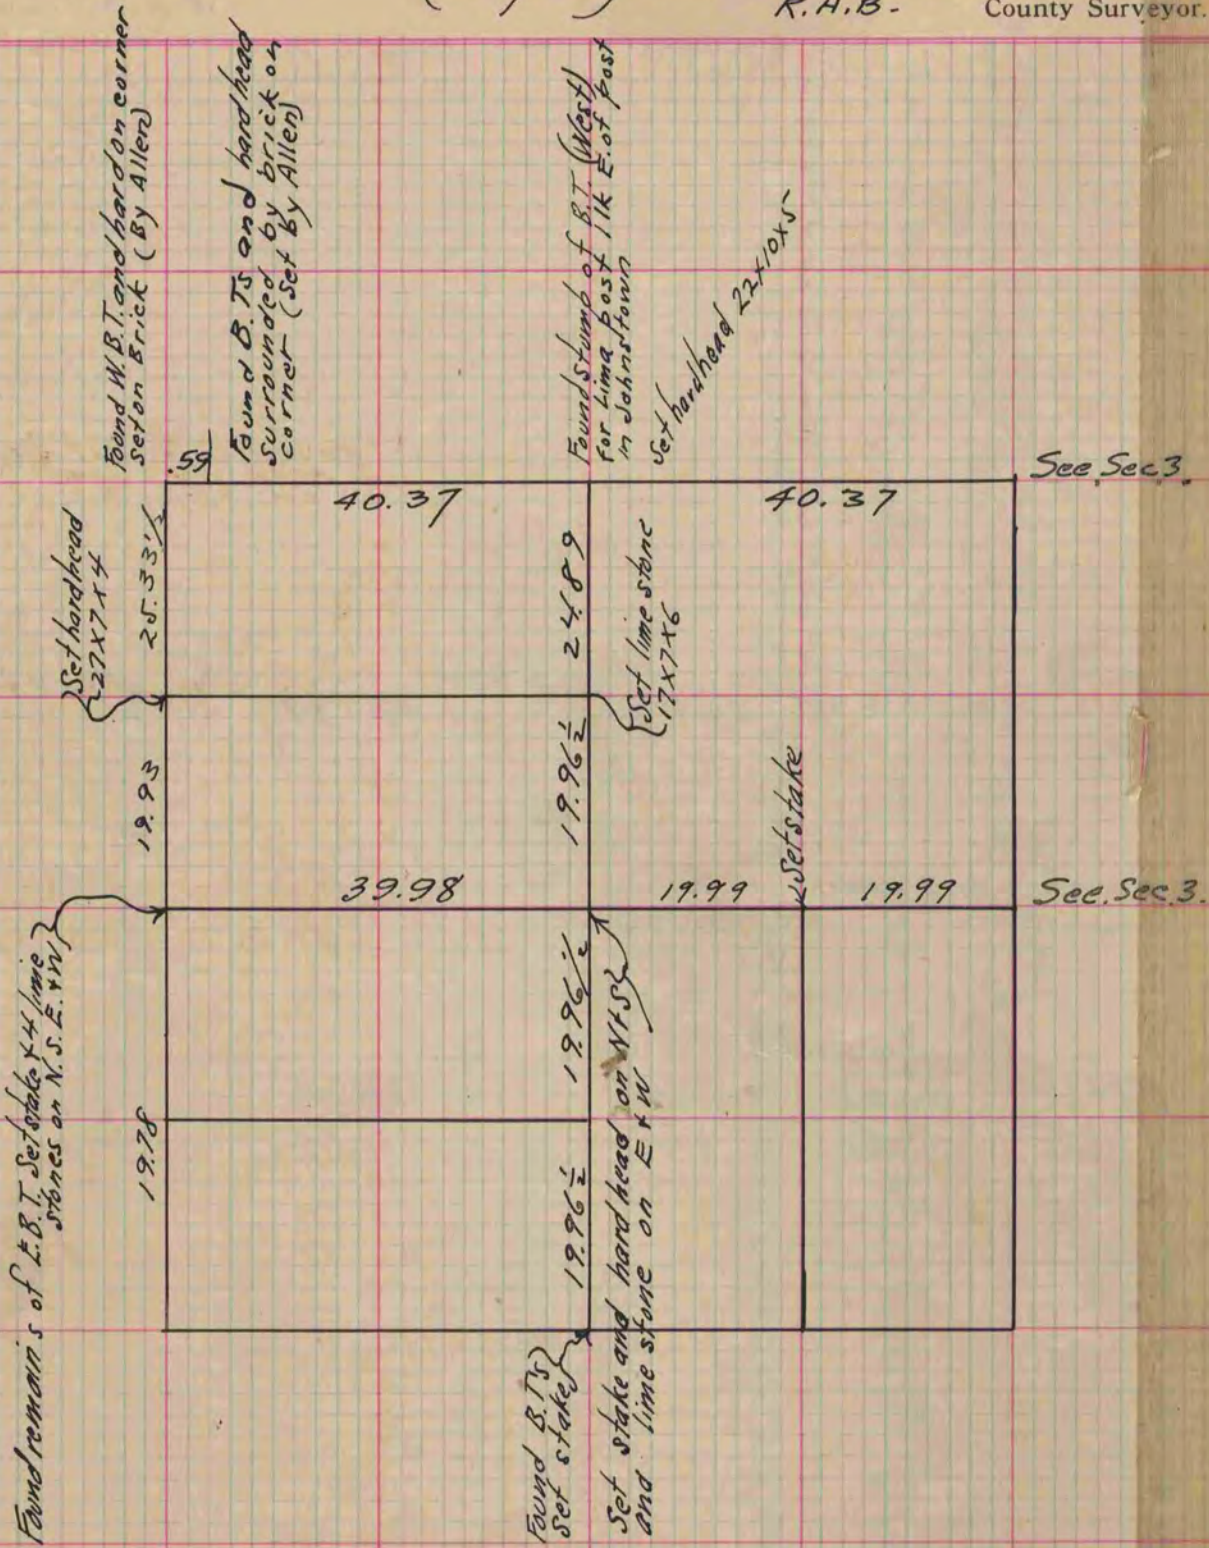 R.A.B. - County Surveyor.
Found W.B.T. and hard on corner
Set on Brick (By Allen)
Found B.Ts and hardhead
Surrounded by brick on
corner (Set by Allen)
Found stump of B.T. (West)
for Lima post 11k E. of post
in Johnstown
Set hardhead 22x10x5
.59
See Sec 3.
40.37
40.37
Set hardhead
27x7x4
25.33½
24.89
Set lime stone
17x7x6
19.93
19.96½
Set stake
39.98
19.99
19.99
See. Sec. 3.
Found remains of E.B.T. Set stake + 4 lime
stones on N.S.E. + W
19.78
19.96½
19.96½
Set stake and hard head on N+S
and lime stone on E + W
Found B.T's
Set stake